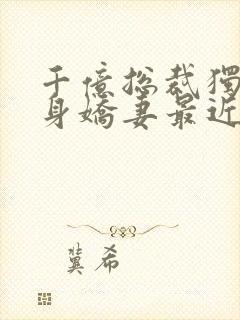 千億總裁獨
身嬌妻最近
冀希